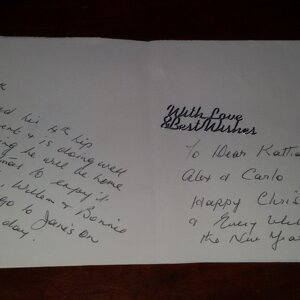 his 4th hip
& is doing well
he will be home
to enjoy it.
Willem & Bonnie
go to Janis on
day.
With Love
& Best Wishes
To Dear
Alex & Carlo
Happy Chris
& Every
the New Year